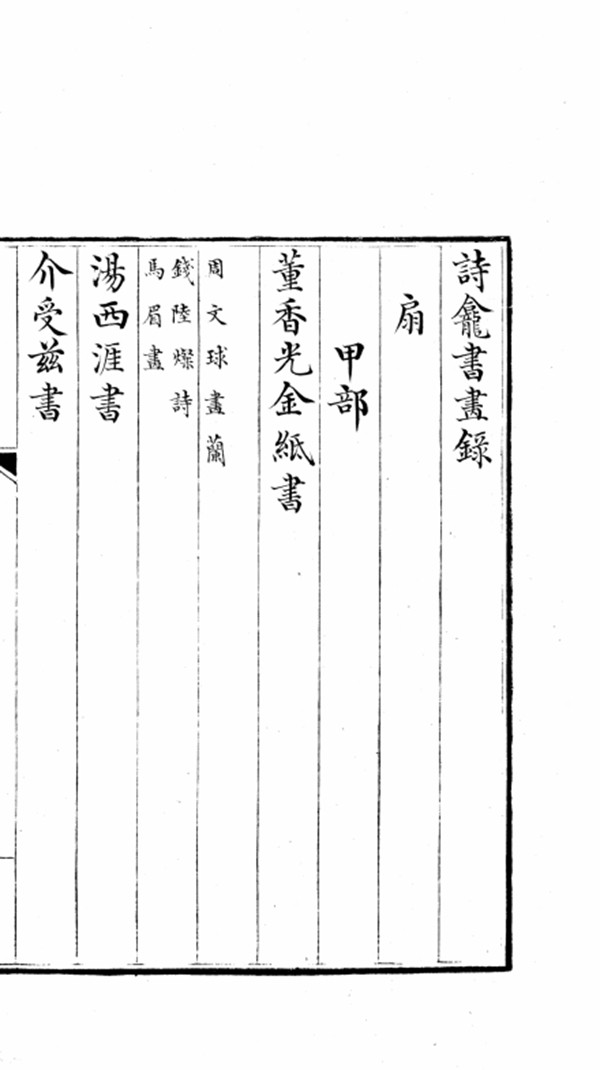 詩龕書畫錄
扇
甲部
董香光金紙書
周文球畫蘭
錢陸燦詩
馬眉畫
湯西涯書
介受茲書